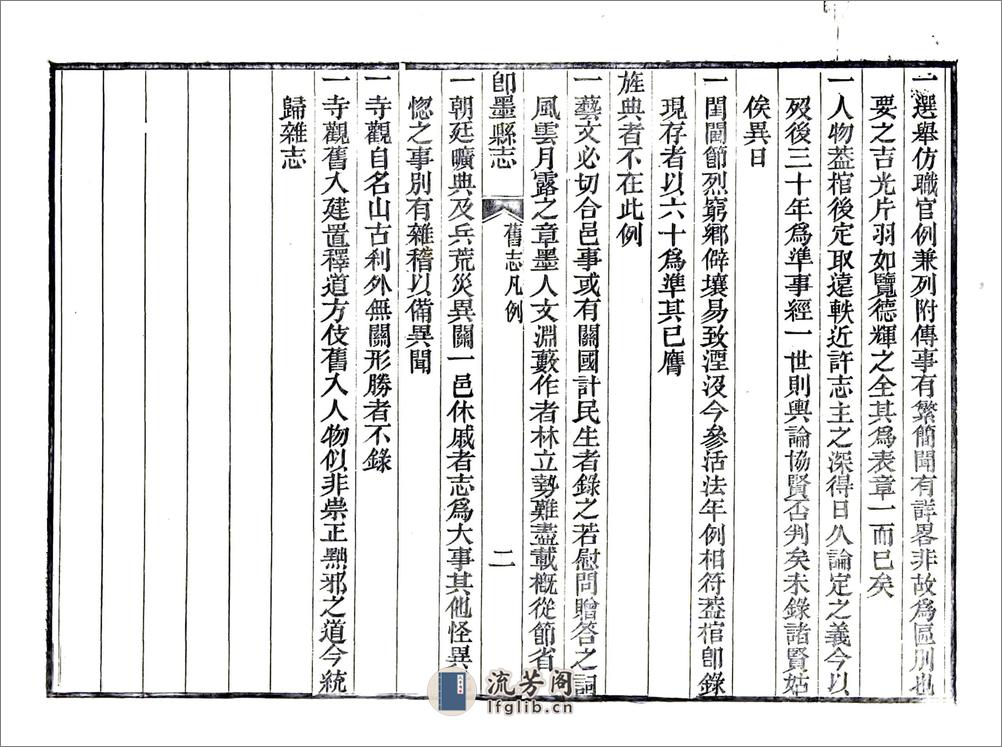 一選舉仿職官例兼列附傳事有繁簡聞有詳畧非故爲區別也
要之吉光片羽如覽德輝之全其爲表章一而已矣
一人物葢棺後定取遠軼近許志主之深得日久論定之義今以
歿後三十年爲準事經一世則輿論協賢否判矣未錄諸賢姑
俟異日
一閨閫節烈窮鄉僻壤易致湮沒今參活法年例相符葢棺卽錄
現存者以六十爲準其已膺
旌典者不在此例
一藝文必切合邑事或有關國計民生者錄之若慰問贈答之詞
風雲月露之章墨人文淵藪作者林立勢難盡載槪從節省
卽墨縣志
舊志凡例
二
一朝廷曠典及兵荒災異關一邑休戚者志爲大事其他怪異
惚之事別有雜稽以備異聞
一寺觀自名山古刹外無關形勝者不錄
一寺觀舊入建置釋道方伎舊入人物似非崇正黜邪之道今統
歸雜志
流芳阁
lfglib.cn